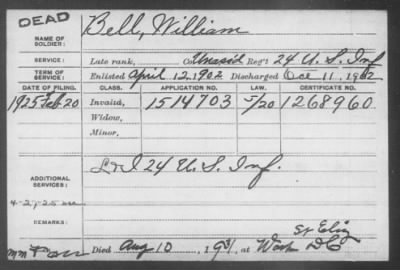 DEAD
NAME OF SOLDIER: Bell, William
SERVICE: Late rank, Co. Unassd Reg't 24 U.S. Inf
TERM OF SERVICE: Enlisted April 12, 1902 Discharged Oct 11, 1902
DATE OF FILING. CLASS. APPLICATION NO. LAW. CERTIFICATE NO.
1925 Feb. 20 Invalid, 1514703 5/20 1268960
Widow,
Minor,
ADDITIONAL SERVICES: 24 U.S. Inf.
4-27-25
REMARKS:
St Eliz
Died Aug 10, 1931, at Wash DC